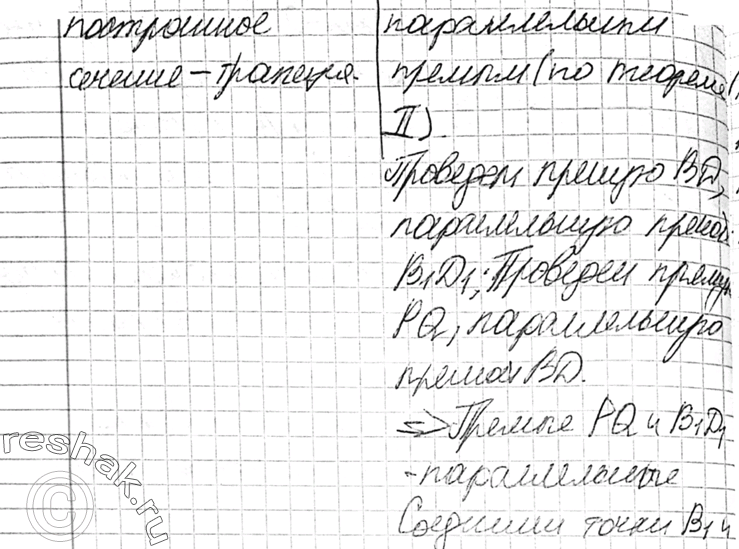 построенное
сечение – трапеция.
параллельным
прямым (по теореме
II).
Проведем прямую BD,
параллельную прямой
B₁D₁; Проведем прямую
PQ, параллельную
прямой BD.
=> Прямые PQ и B₁D₁
- параллельные
Соединим точки B₁ и
reshak.ru